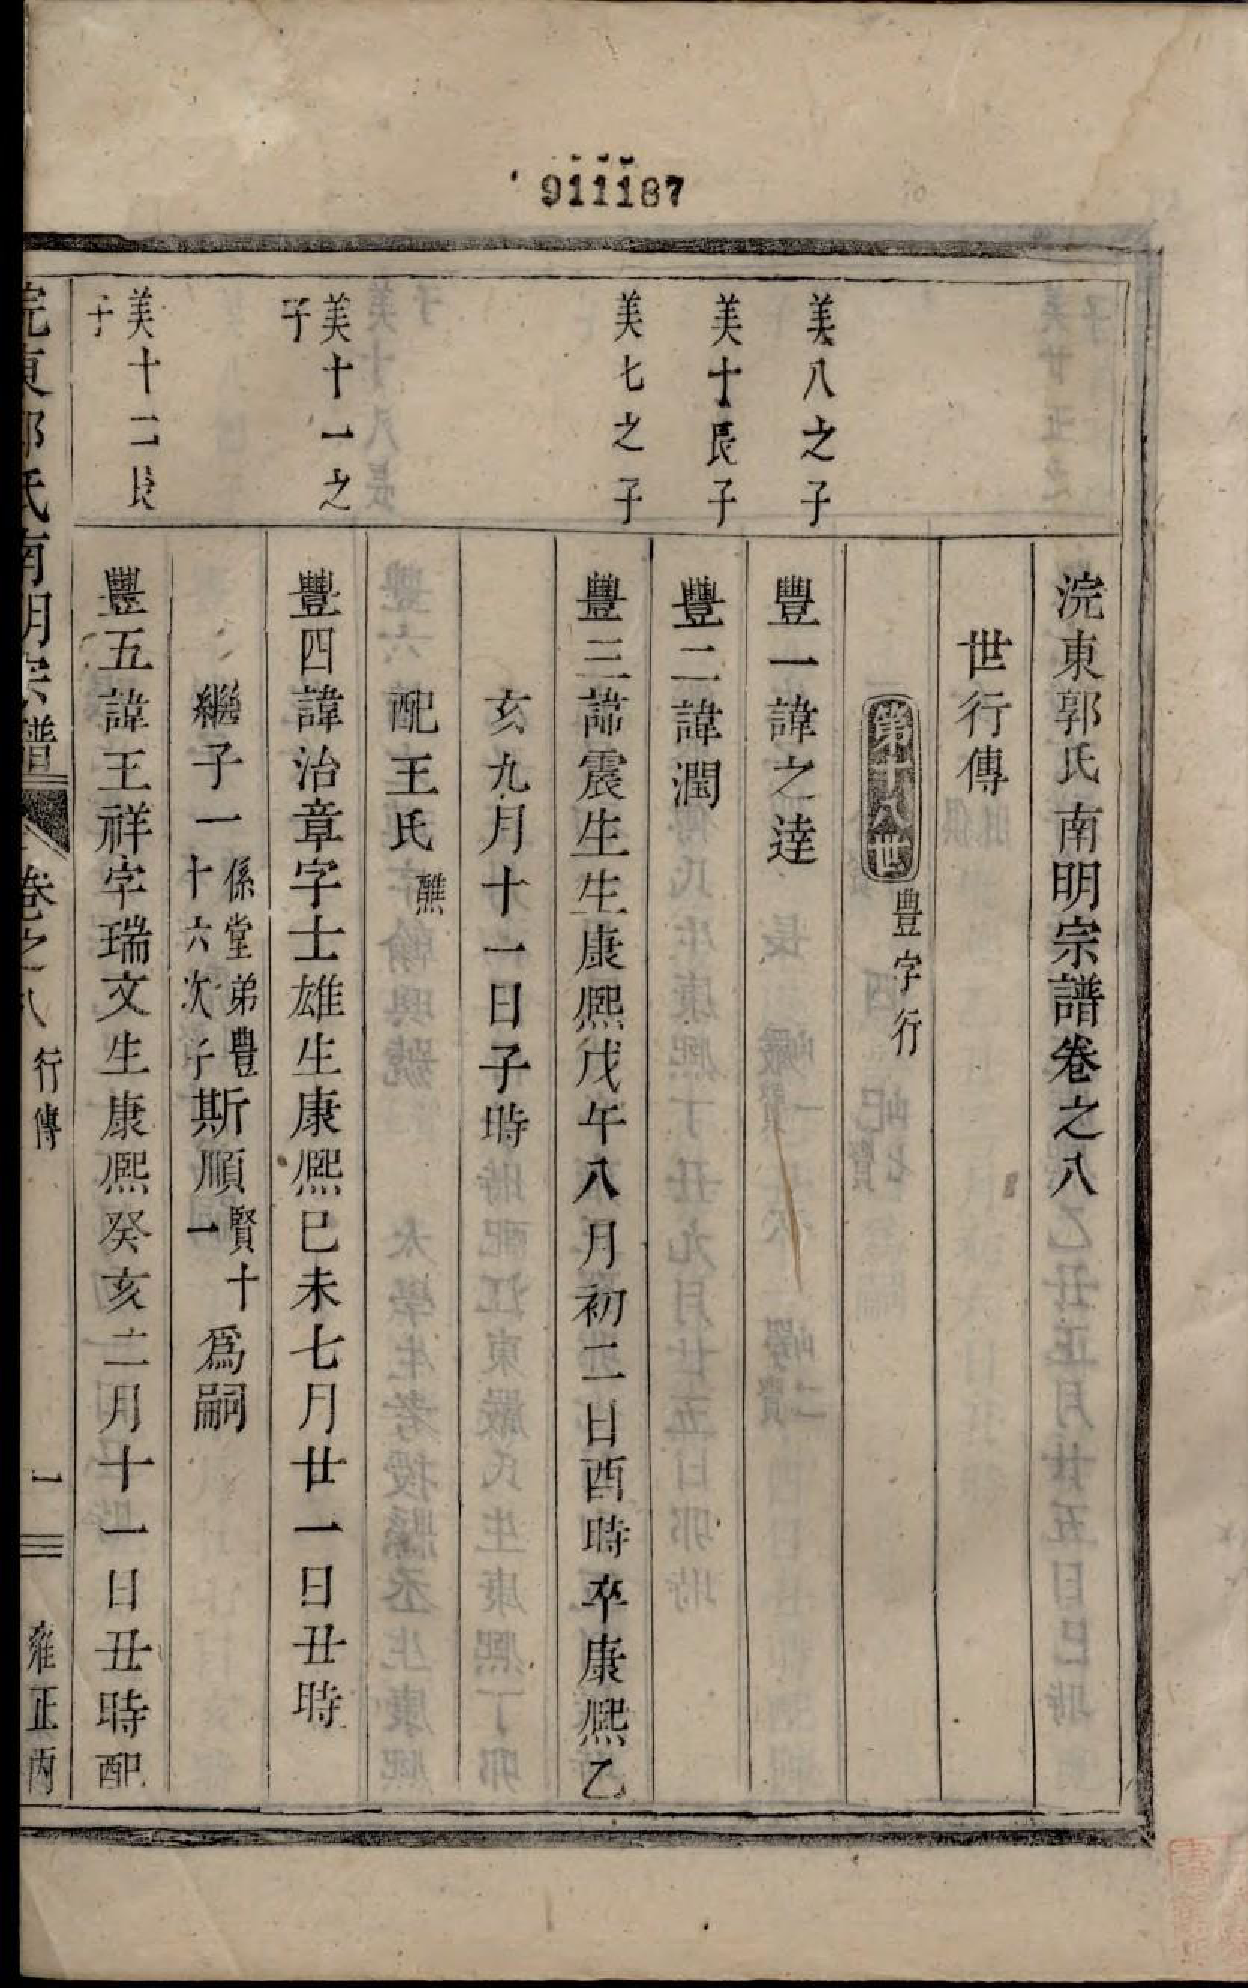 911187
浣東郭氏南明宗譜卷之八
世行傳
第十八世 豐字行
美八之子
豐一諱之達
美十長子
豐二諱潤
美七之子
豐三諱震生生康熙戊午八月初二日酉時卒康熙乙
亥九月十一日子時
配王氏 醮
美十一之
子
豐四諱治章字士雄生康熙己未七月廿一日丑時
繼子一係堂弟豐十六次子斯順賢十一為嗣
美十二長
子
豐五諱王祥字瑞文生康熙癸亥二月十一日丑時配
浣東郭氏南明宗譜 卷之八 行傳 一 雍正